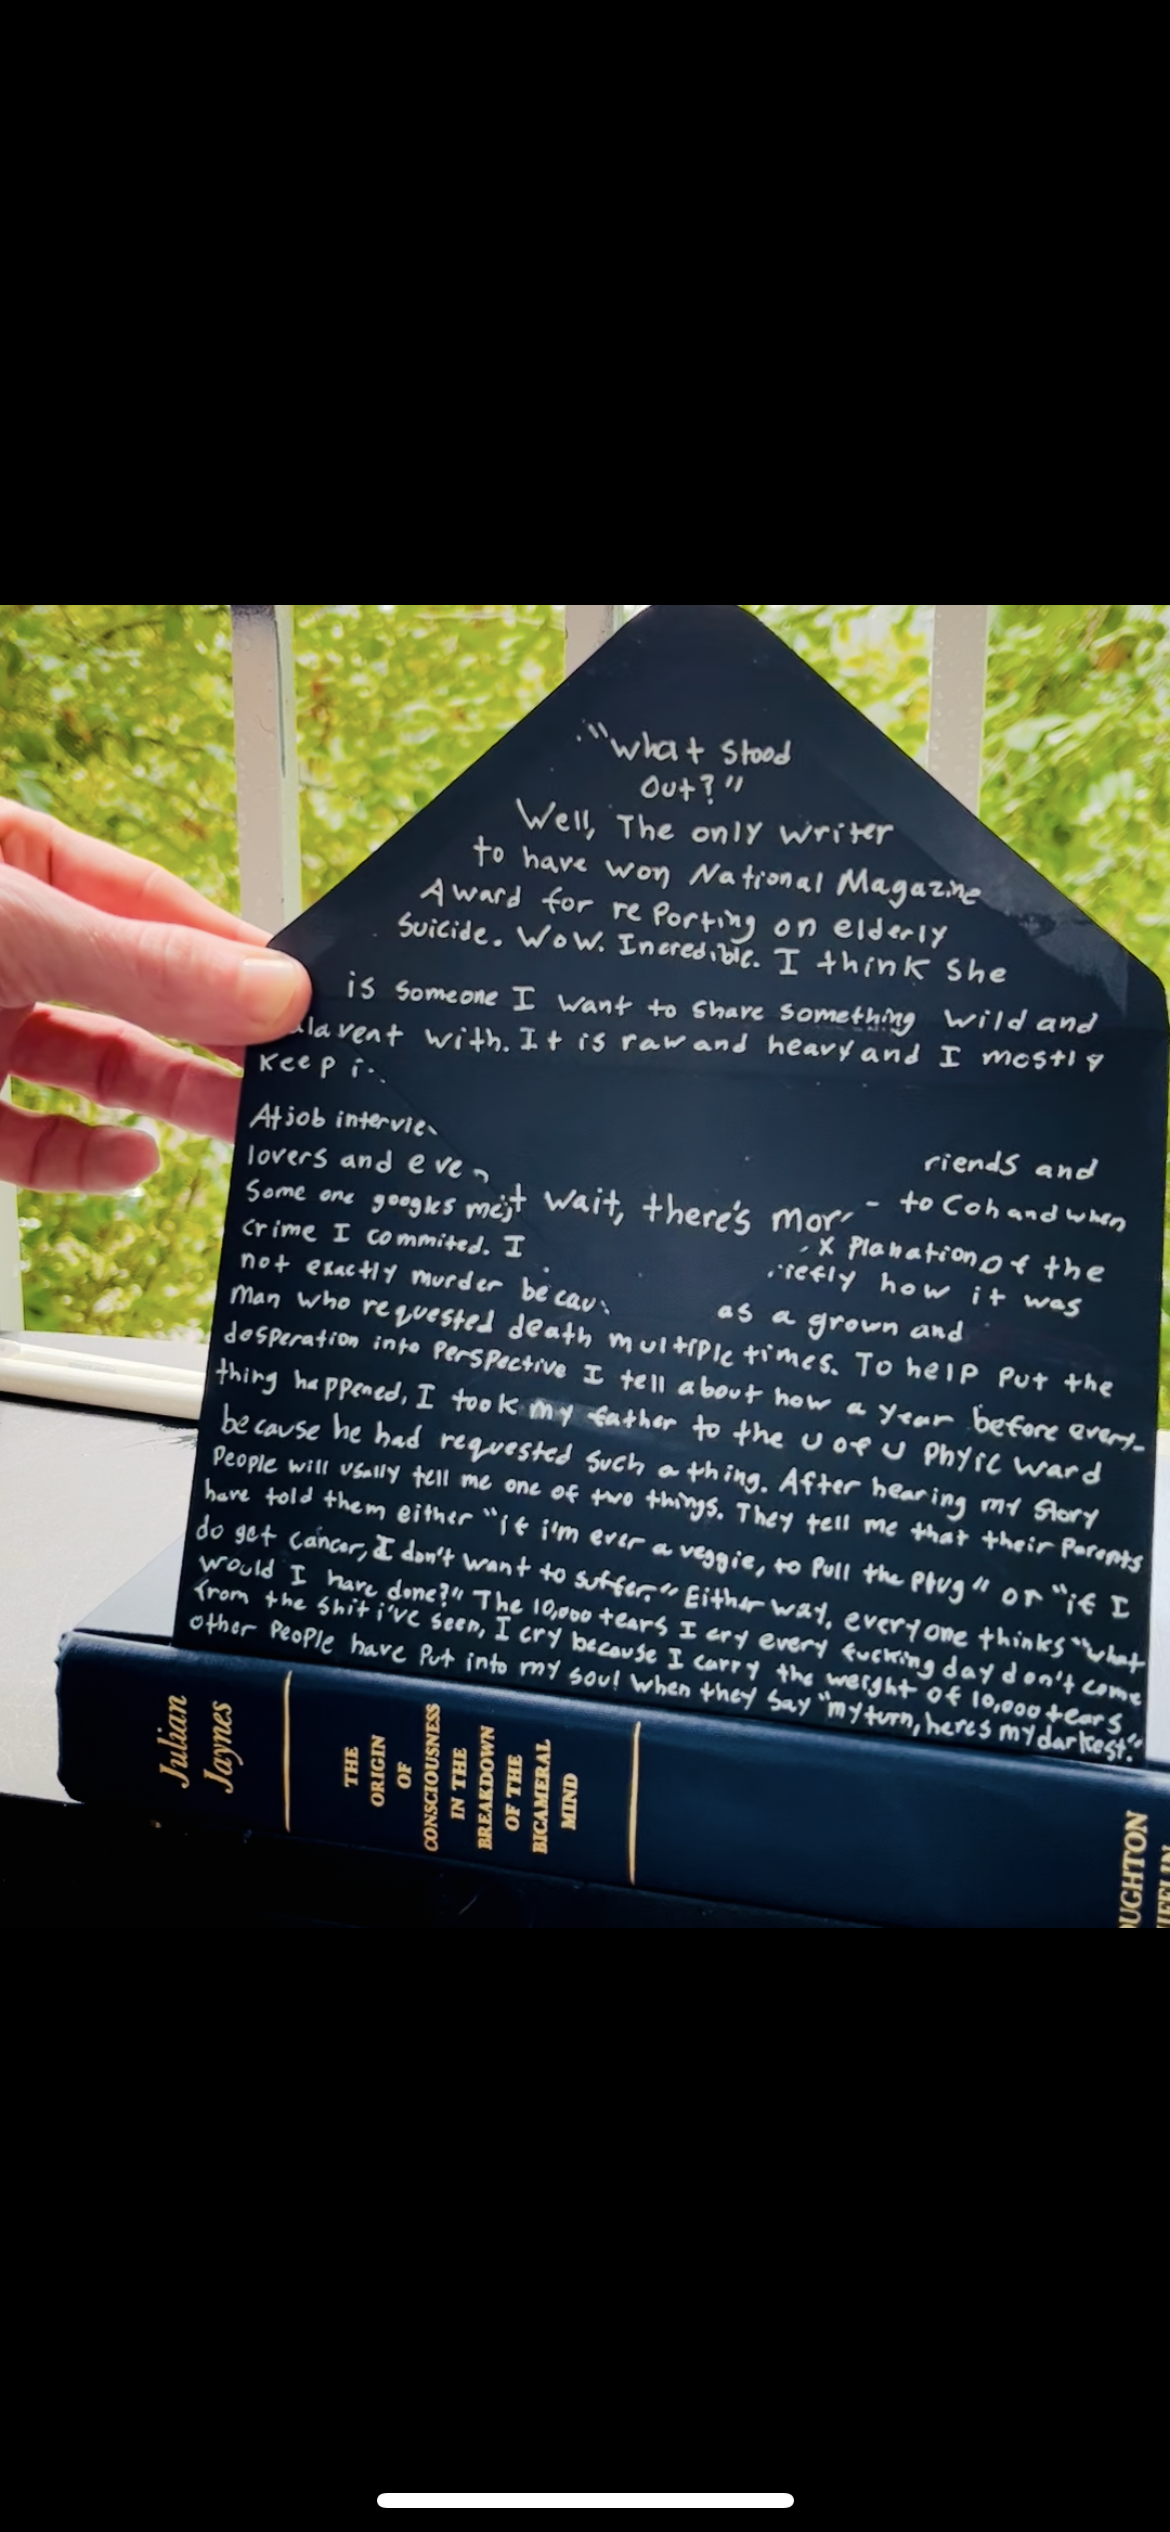 "What Stood
Out?"
Well, The only writer
to have won National Magazine
Award for reporting on elderly
Suicide. WoW. Incredible. I think She
is someone I want to share something wild and
lavent with. It is raw and heavy and I mostly
Keep i
At job intervie
riends and
lovers and eve
to Coh and when
Some one googles me,
t wait, there's mor
xplanation of the
crime I commited. I
riefly how it was
not exactly murder becau
as a grown and
Man who requested death multiple times. To help put the
desperation into Perspective I tell about how a year before every-
thing happened, I took my father to the U of U Phyic ward
because he had requested such a thing. After hearing my Story
People will usally tell me one of two things. They tell me that their Parents
have told them either "if i'm ever a veggie, to Pull the Plug" or "if I
do get cancer, I don't want to suffer." Either way, everyone thinks "what
would I have done?" The 10,000 tears I cry every fucking day don't come
from the shit i've seen, I cry because I carry the weight of 10,000 tears
other People have Put into my soul when they say "my turn, heres my darkest."
Julian
Jaynes
THE
ORIGIN
OF
CONSCIOUSNESS
IN THE
BREAKDOWN
OF THE
BICAMERAL
MIND
OUGHTON